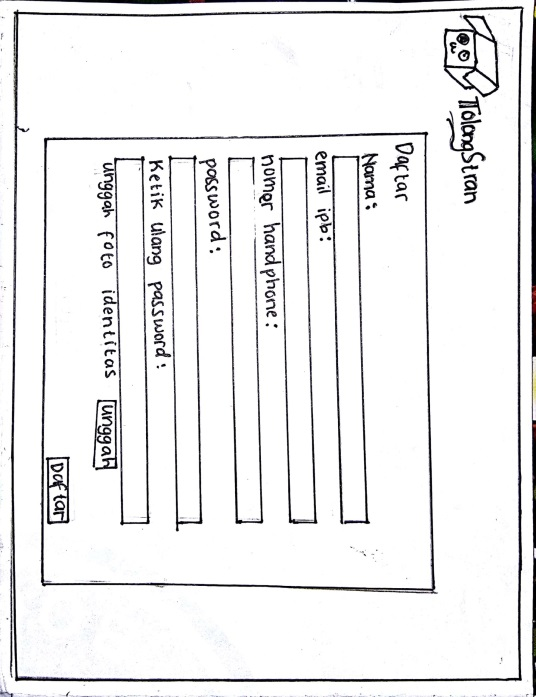 TolongStran
Daftar
Nama:
email ipb:
nomer handphone:
password:
Ketik ulang password:
unggah foto identitas unggah
Daftar